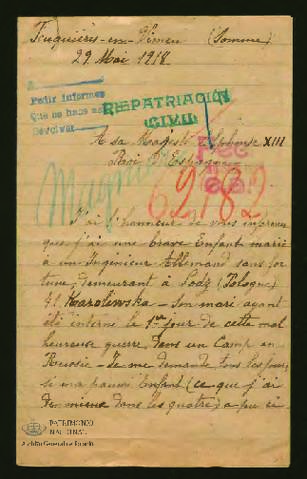 Feuquières-en-Vimeu (Somme)
29 Mai 1918
A
Pedir informes
Que no hace
Devolver
REPATRIACIÓN
CIVIL
A sa Majesté Alphonse XIII
Roi d'Espagne
Magnier
62182
J'ai l'honneur de vous informer
que j'ai une brave Enfant mariée
à un Ingénieur Allemand sans for
tune, demeurant à Lodz (Pologne)
41 Karoliewska - Son mari ayant
été interné le 1er jour de cette mal
heureuse guerre, dans un Camp en
Russie - Je me demande tous les jours
si ma pauvre Enfant (ce que j'ai
de mieux dans les quatre) a pu
PATRIMONIO
NACIONAL
Archivo General de Palacio